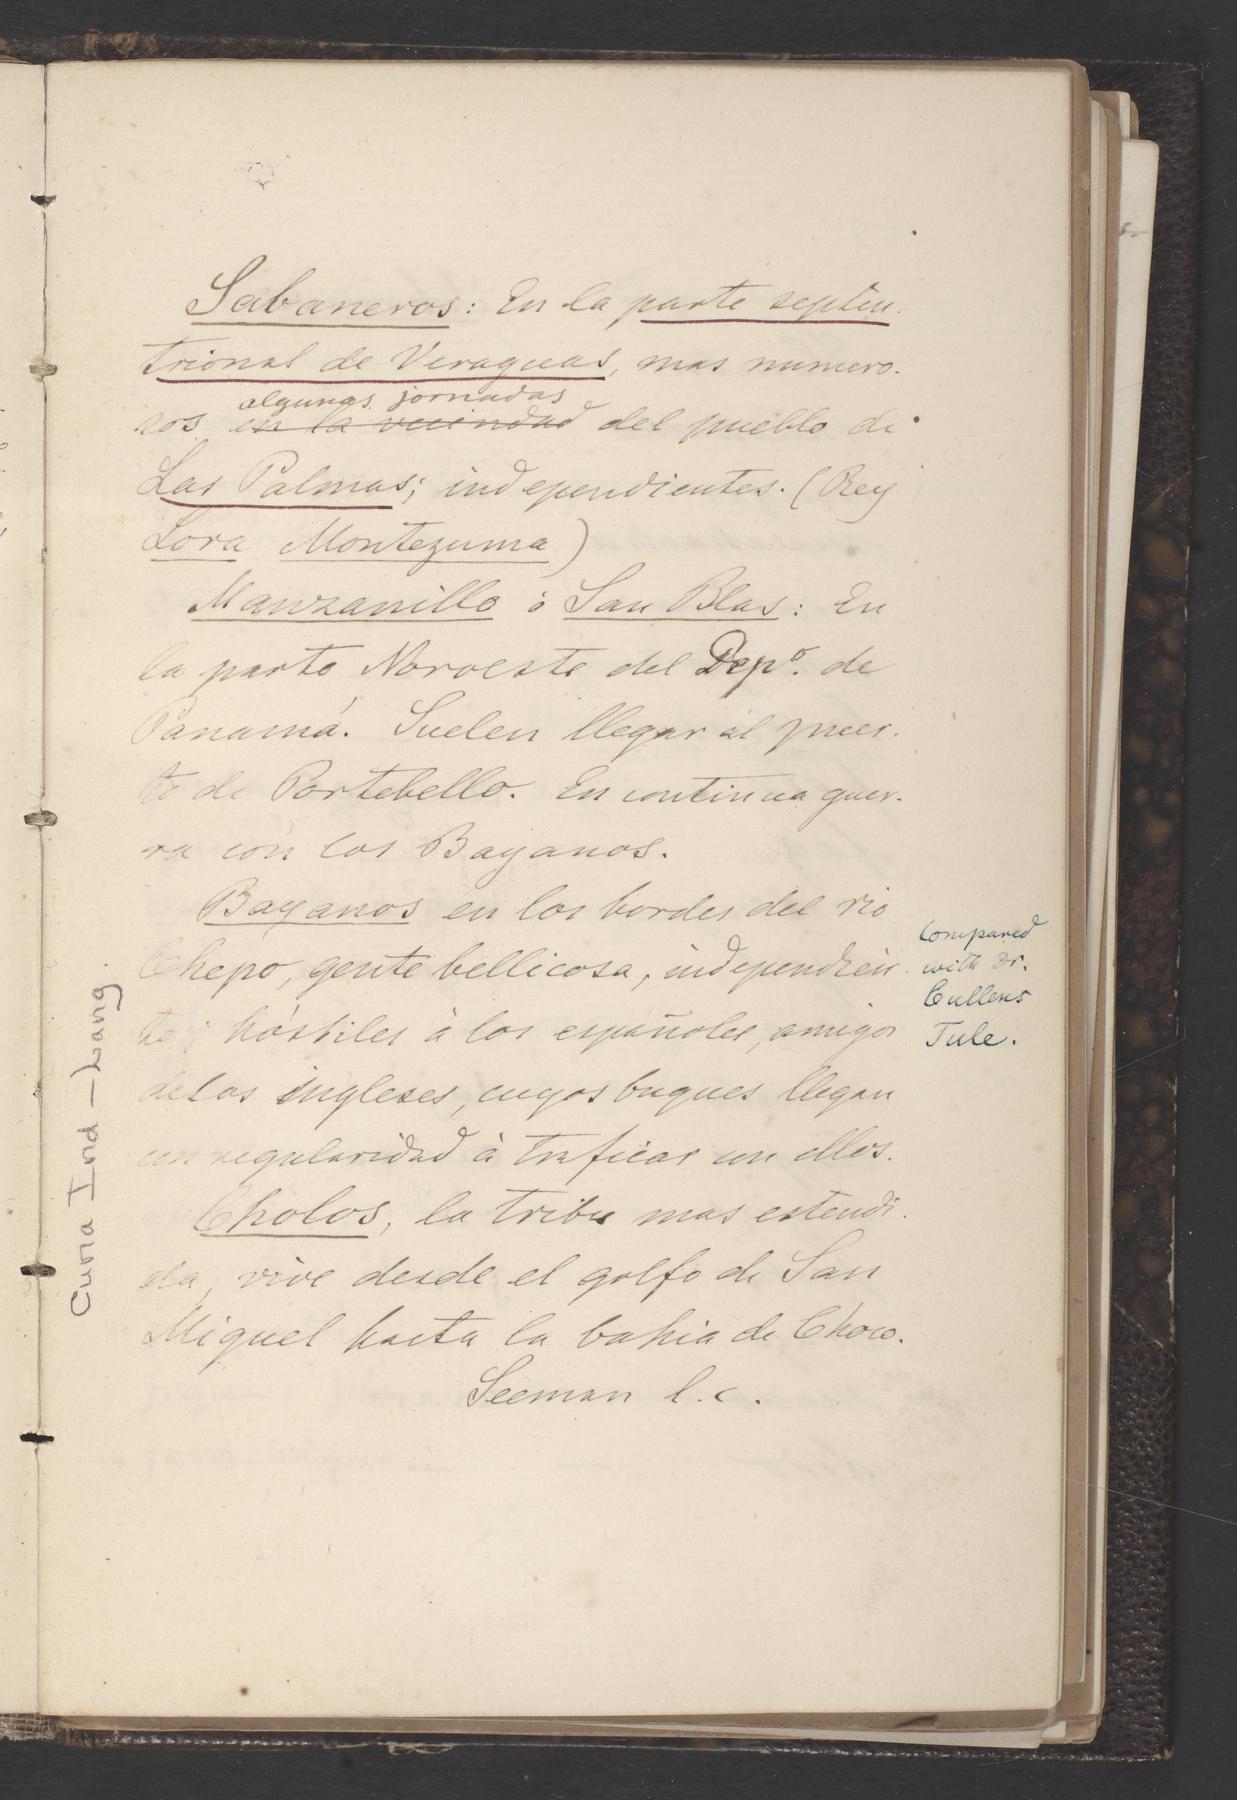 Sabaneros: En la parte septen-
trional de Veraguas, mas numero-
algunas jornadas
sos en la vecindad del pueblo de
Las Palmas; independientes. (Rey
Lora Montezuma)
Manzanillo ó San Blas: En
la parte Noroeste del Depº. de
Panamá. Suelen llegar al puer-
to de Portebello. En continua guer-
ra con los Bayanos.
Bayanos en los bordes del rio
Chepo, gente bellicosa, independien-
te; hóstiles à los españoles, amigos
de los ingleses, cuyos buques llegan
con regularidad à traficar con ellos.
Cholos, la tribu mas estendi-
da, vive desde el golfo de San
Miguel hasta la bahia de Choco.
Seeman l.c.
Compared
with Dr.
Cullens
Tule.
Cuna Ind - Lang.